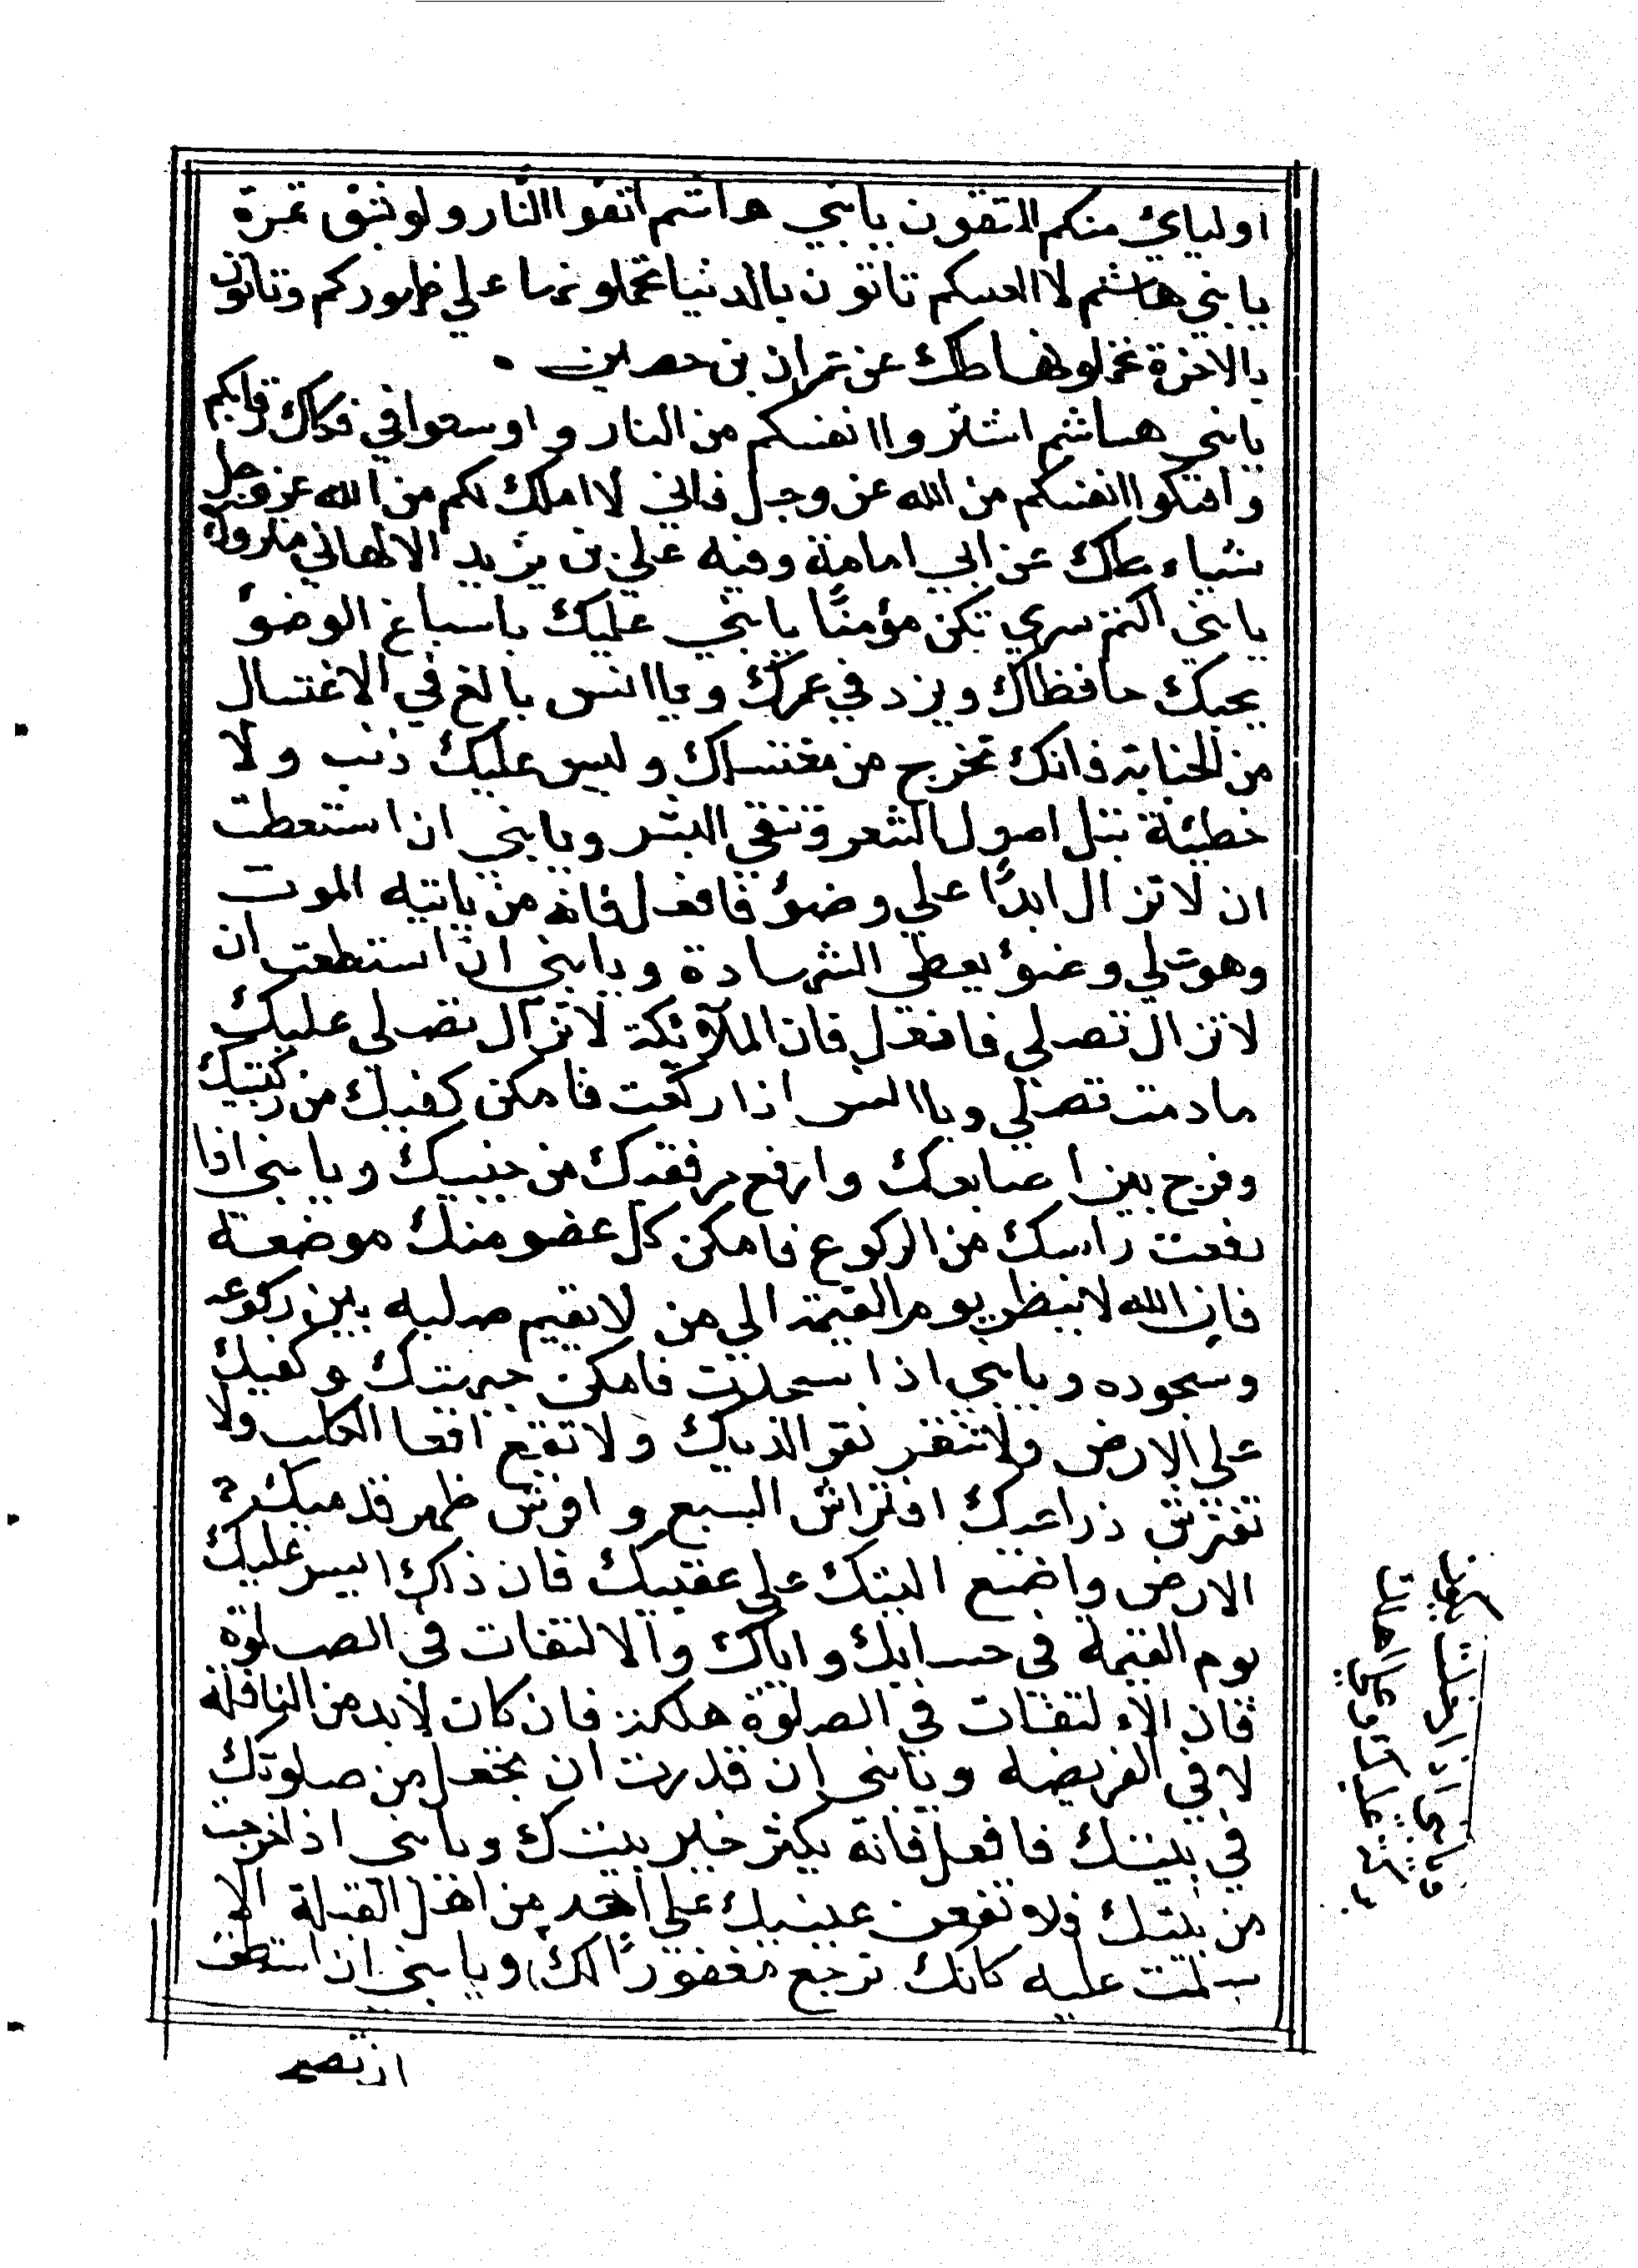 اوليائ منكم المتقون يابني هاشم اتقوا النار ولو بشق تمرة
يا بني هاشم لا الفينكم تاتون بالدنيا تحملونها علي ظهوركم وتاتون
بالاخرة تحملونها طك عن عمران بن حصين
يابني هاشم اشتروا انفسكم من النار واوسعوا في فكاك رقابكم
وافتكوا انفسكم من الله عز وجل فاني لا املك لكم من الله عز وجل
شياء طك عن ابي امامة وفيه علي بن يزيد الالهاني متروك
يابني اكتم سري تكن مؤمنًا يابني عليك باسباغ الوضوء
يحبك حافظاك ويزد في عمرك ويا انس بالغ في الاغتسال
من الجنابة فانك تخرج من مغتسلك وليس عليك ذنب ولا
خطيئة تبل اصول الشعر وتنقي البشر ويابني ان استعطت
ان لا تزال ابدًا علي وضوء فافعل فانه من ياتيه الموت
وهو علي وضوء يعطي الشهادة ويابني ان استطعت ان
لا تزال تصلي فافعل فان الملآئكة لا تزال تصلي عليك
مادمت تصلي ويا انس اذا ركعت فامكن كفيك من ركبتيك
وفرج بين اصابعك وارفع مرفقيك من جنبيك ويابني اذا
رفعت راسك من الركوع فامكن كل عضو منك موضعه
فان الله لا ينظر يوم القيمة الي من لا يقيم صلبه بين ركوعه
وسجوده ويابني اذا سجدت فامكن جبهتك وكفيك
علي الارض ولا تنقر نقر الديك ولا تقع اقعا الكلب ولا
تفترش ذراعيك افتراش السبع وافرش ظهر قدميك
الارض واضع اليتك علي عقبيك فان ذاك ايسر عليك
يوم القيمة في حسابك واياك والالتفات في الصلوة
فان الالتفات في الصلوة هلكة فان كان لا بد من النافلة
لا في الفريضة ويابني ان قدرت ان تجعل من صلوتك
في بيتك فافعل فانه يكثر خير بيتك ويابني اذا خرجت
من بيتك فلا تقعن عينيك علي احد من اهل القبلة الا
سلمت عليه كانك ترجع مغفورًا لك ويابني ان استطعت
ان تصبح
ويابني اذا دخلت يكون
بركة عليك وعلي اهلك